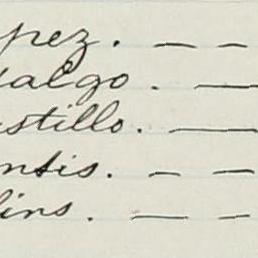 pez. — —
algo. —
stillo. —
ntis. — —
lins. — —